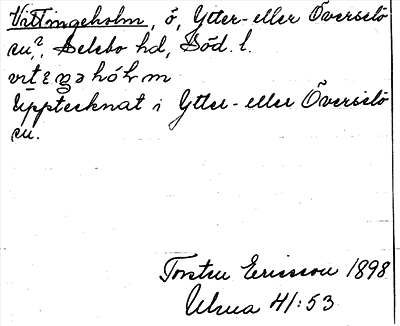 Vittingeholm, ö, Ytter- eller Överselö
sn?, Selebo hd, Söd. l.
Upptecknat i Ytter- eller Överselö
sn.
Torsten Ericsson 1898
Ulma 41:53